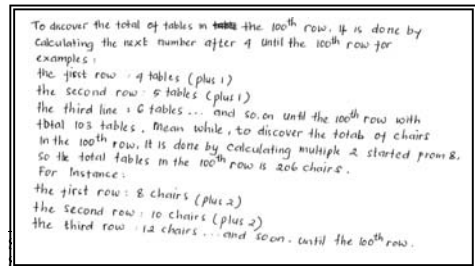 To discover the total of tables in the 100th row, it is done by
calculating the next number after 4 until the 100th row for
examples :
the first row : 4 tables (plus 1)
the second row : 5 tables (plus 1)
the third line : 6 tables ... and so.on until the 100th row with
total 103 tables. Mean while, to discover the totals of chairs
in the 100th row, it is done by calculating multiple 2 started from 8.
So the total tables in the 100th row is 206 chairs.
For Instance :
the first row : 8 chairs (plus 2)
the second row : 10 chairs (plus 2)
the third row : 12 chairs ... and soon. until the 100th row.